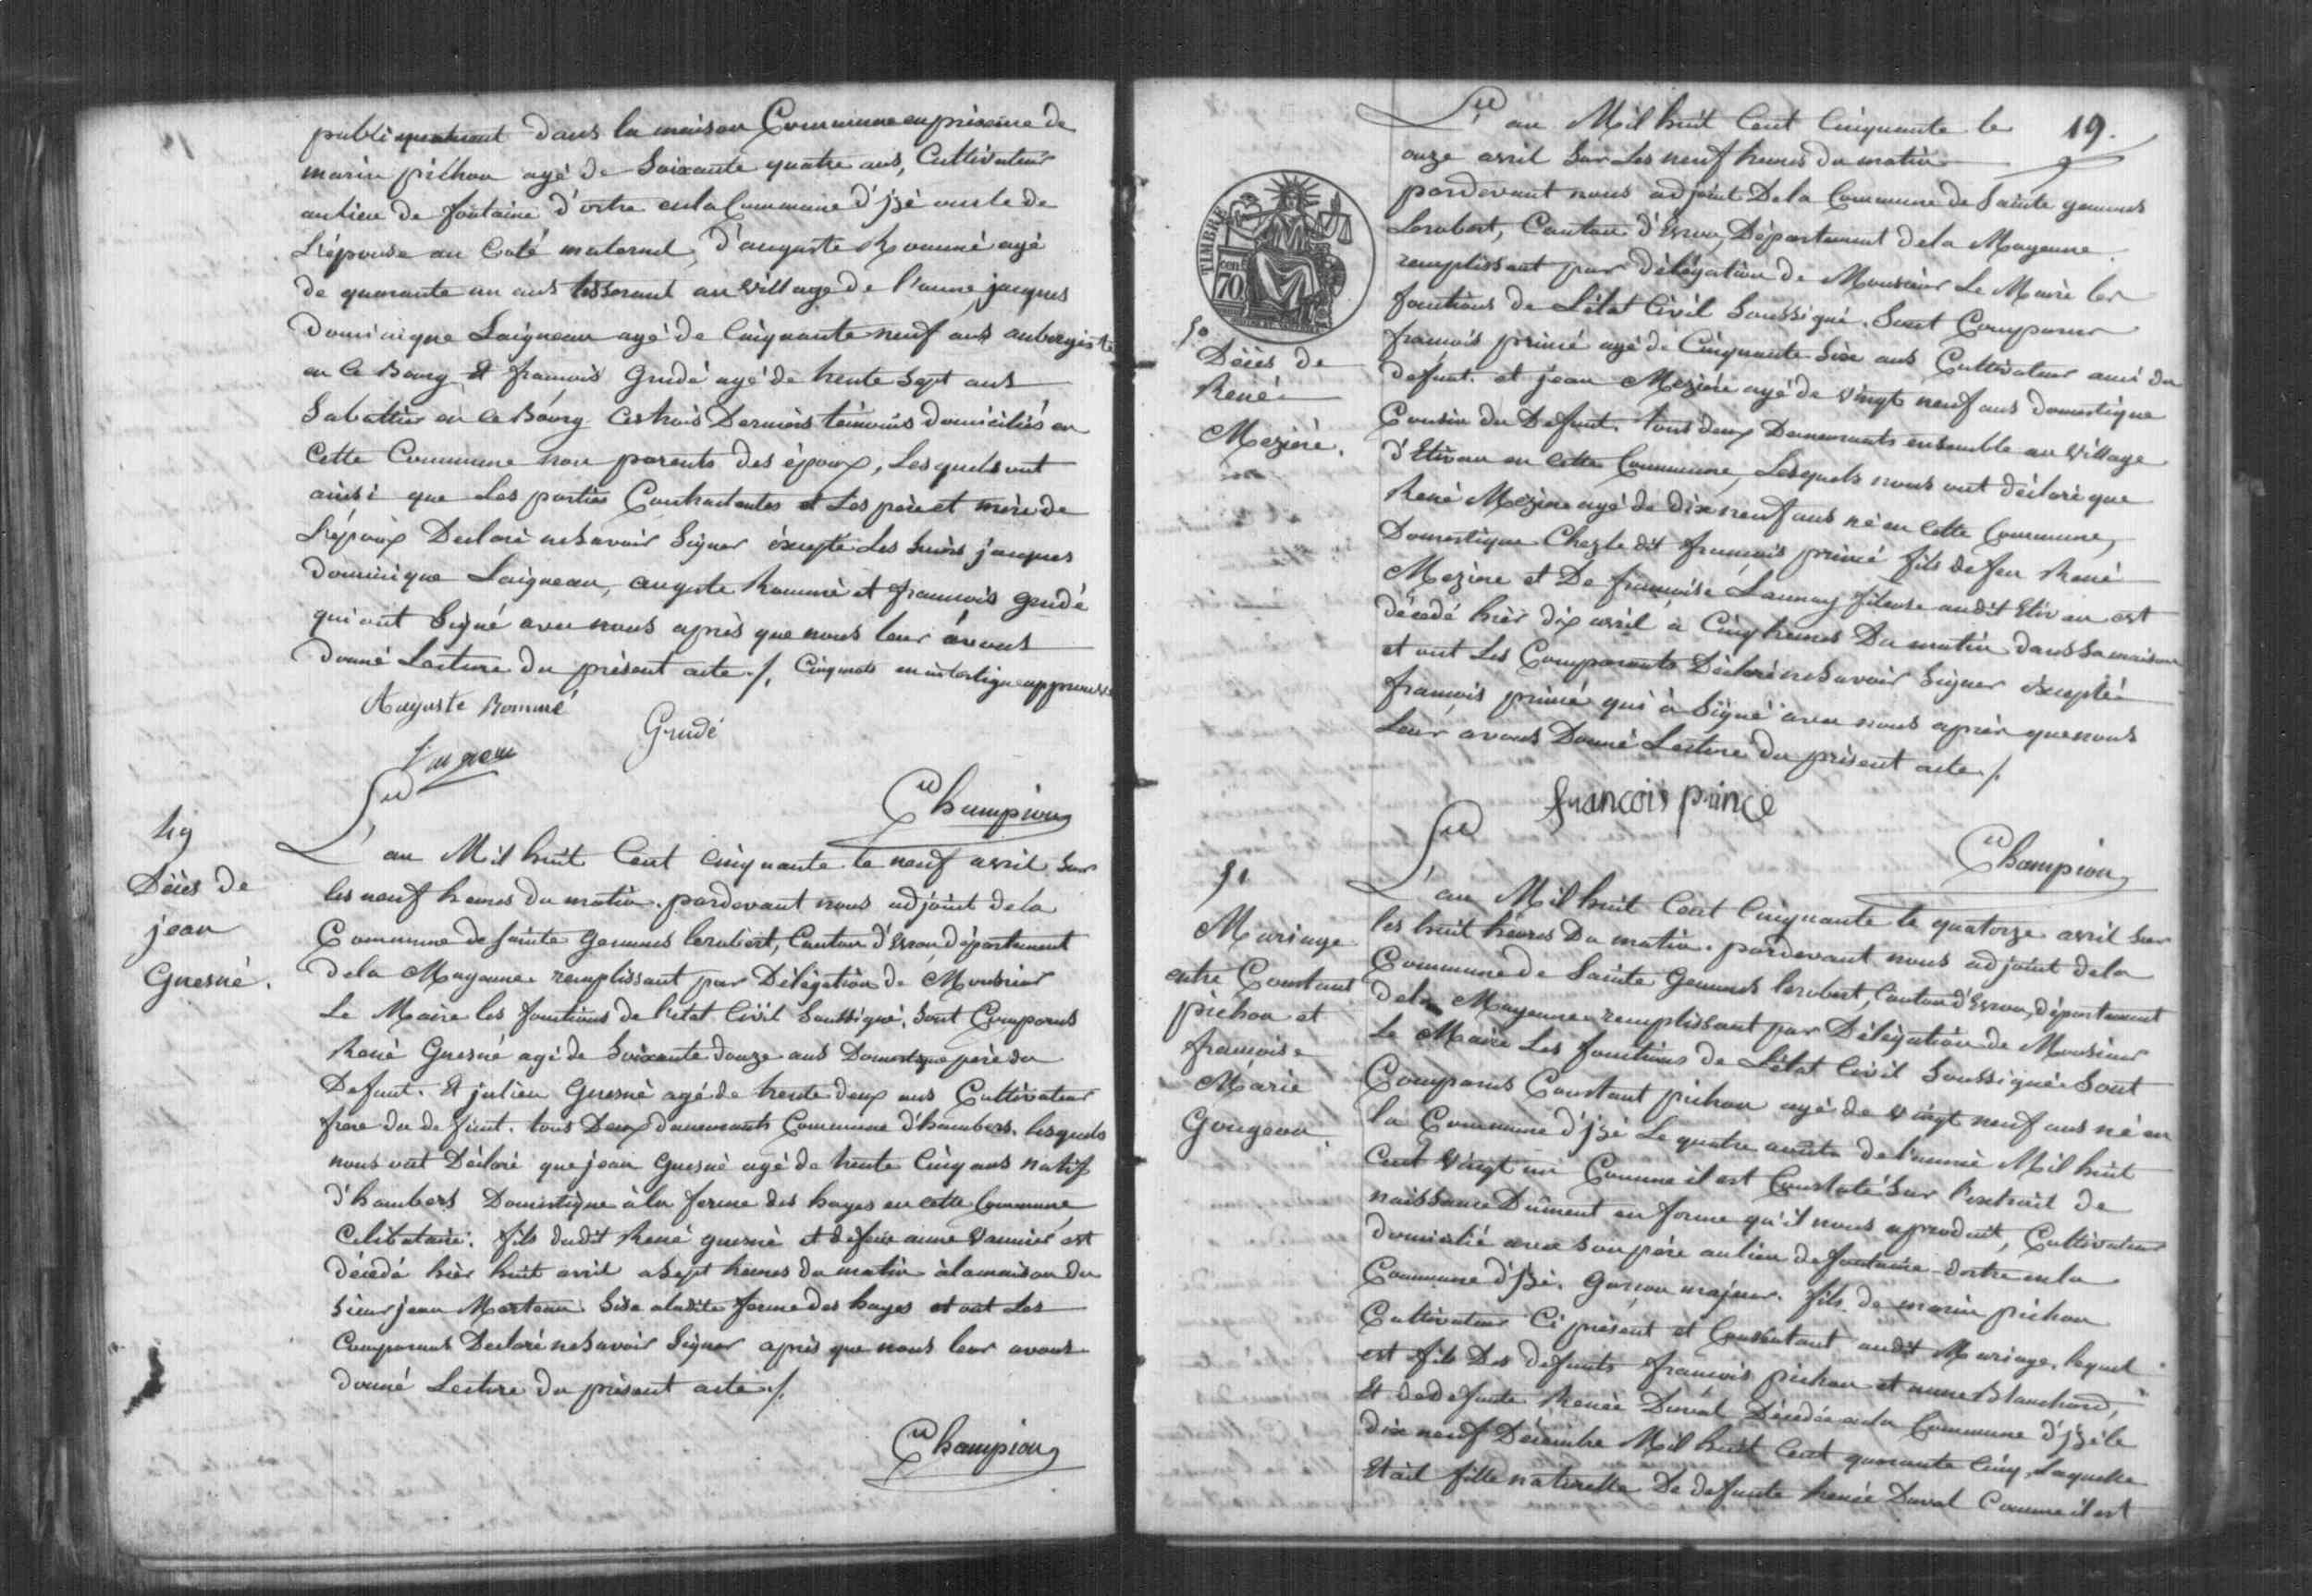 publiquement dans la maison Commune en présence de
marin pichon agé de Soixante quatre ans, Cultivateur
au lieu de fontaine d'ortre en la Commune d'jzé oncle de
L'épouse au Coté maternel, d'auguste Rommé agé
de quarante un ans tisserant au village de l'aune jacques
Dominique Laigneau agé de Cinquante neuf ans aubergiste
en Ce Bourg Et francois Grudé agé de trente Sept ans
Sabottier en Ce Bourg Ces trois Derniers témoins domiciliés en
Cette Commune non parents des époux, Lesquels ont
ainsi que Les parties Contractantes et Les père et mère de
L'époux Déclaré ne Savoir Signer éxcepté Les Sieurs jacques
Dominique Laigneau, auguste Rommé et francois grudé
qui ont Signé avec nous après que nous leur avons
donné Lecture du présent acte ./. Cinq mots en interligne approuvés
Auguste Rommé
Grudé
Laigneau
Champion
49
Décès de
jean
Guesné.
L'an Mil huit Cent Cinquante le neuf avril Sur
les neuf heures du matin. pardevant nous adjoint de la
Commune de Sainte Gemmes lerobert, Canton d'Evron département
de la Mayenne remplissant par Délégation de Monsieur
Le Maire les fonctions de l'état Civil Soussigné, Sont Comparus
René Guesné agé de Soixante douze ans Domestique père du
Defunt. Et julien Guesné agé de trente deux ans Cultivateur
frere du de funt. tous Deux demeurants Commune d'hambers. lesquels
nous ont Déclaré que jean Guesné agé de trente Cinq ans natif
d'hambers Domestique à la ferme des hayes en cette Commune
Célibataire. fils dudit René guesné et de feue anne vannier est
décédé hier huit avril a Sept heures du matin à la maison du
Sieur jean Morteau Sise a ladite ferme des hayes et ont Les
Comparus Declaré ne Savoir Signer après que nous leur avons
donné Lecture du présent acte ./.
Champion
19.
L'an Mil huit Cent Cinquante le
onze avril Sur Les neuf heures du matin
pardevant nous adjoint De la Commune de Sainte gemmes
Lerobert, Canton d'Evron, Département de la Mayenne.
remplissant par Délégation de Monsieur Le Maire les
fonctions de L'état Civil Soussigné. Sont Comparus
francois princé agé de Cinquante Six ans Cultivateur ami du
defunt. et jean Mezière agé de vingt neuf ans domestique
Cousin du Defunt. tous deux Demeurants ensemble au village
d'Etivau en Cette Commune, Lesquels nous ont déclaré que
René Mezière agé de dix neuf ans né en Cette Commune,
Domestique Chez le dit francois princé fils de feu René
Mezière et De francoise Launay fileuse audit Etivau est
décédé hier dix avril à Cinq heures Du matin dans Sa maison
et ont Les Comparants Déclaré ne Savoir Signer éxcepté
francois princé qui à Signé avec nous après que nous
Leur avons Donné Lecture du présent acte ./.
TIMBRE
cen.
70
50
Décès de
René
Mezière.
francois prince
Champion
51
Mariage
entre Constant
pichon et
francoise
Marie
Gougeon
L'an Mil huit Cent Cinquante le quatorze avril Sur
les huit heures Du matin. pardevant nous adjoint de la
Commune de Sainte Gemmes lerobert, Canton d'Evron, département
de la Mayenne remplissant par Délégation de Monsieur
Le Maire Les fonctions de L'état Civil Soussigné Sont
Comparus Constant pichon agé de vingt neuf ans né en
la Commune d'jzé Le quatre août de l'année Mil huit
Cent vingt un Comme il est Constaté Sur l'extrait de
naissance Dûment en forme qu'il nous a produit, Cultivateur
domicilié avec Son père au lieu de fontaine dortre en la
Commune d'jzé. Garçon majeur. fils de marin pichon
Cultivateur Ci présent et Consentant audit Mariage. lequel
est fils Des defunts francois pichon et anne Blanchard,
Et de defunte Renée Duval Décédée en la Commune d'jzé le
dix neuf Décembre Mil huit Cent quarante Cinq, Laquelle
Etait fille naturelle De defunte Renée Duval Comme il est